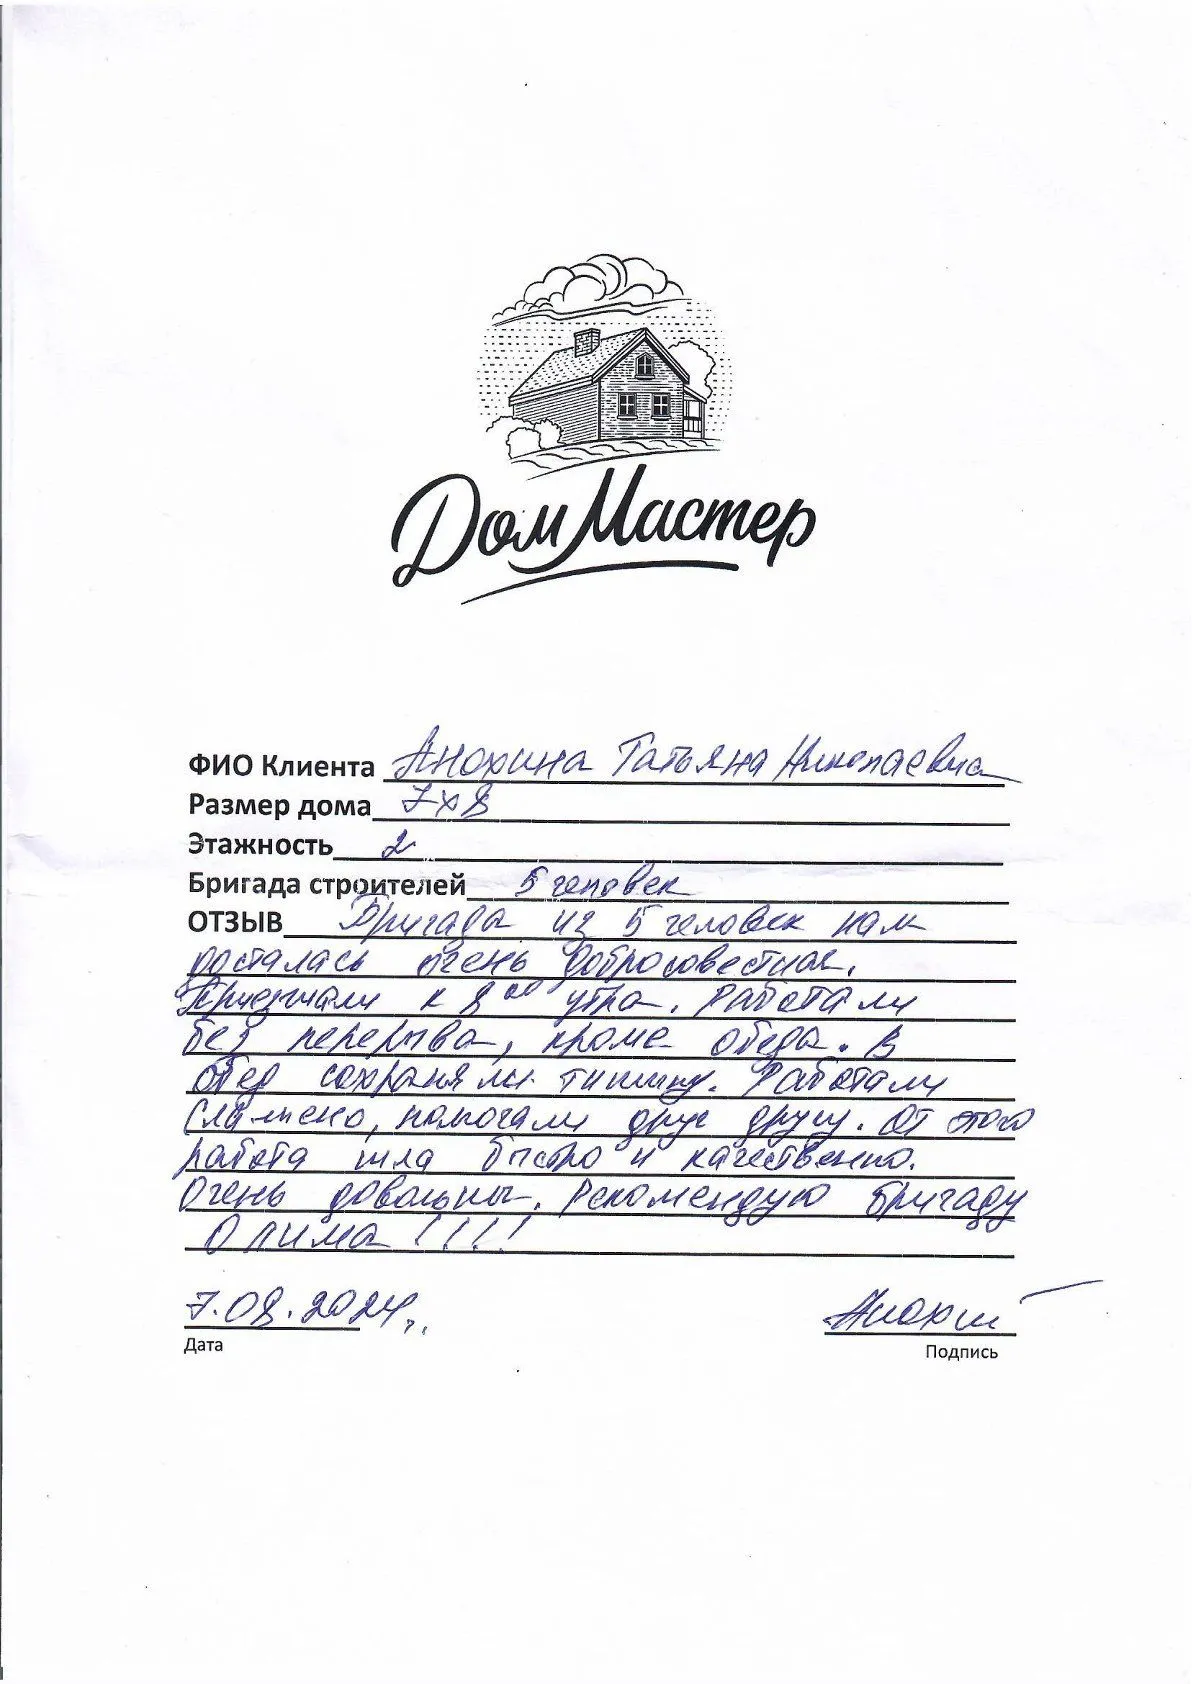 ДомМастер
ФИО Клиента Анохина Татьяна Николаевна
Размер дома 7х8
Этажность 2
Бригада строителей 5 человек
ОТЗЫВ Бригада из 5 человек нам
досталась очень добросовестная.
Приезжали к 8 00 утра. Работали
без перерыва, кроме обеда. В
обед сохраняли тишину. Работали
слажено, помогали друг другу. От этого
работа шла быстро и качественно.
Очень довольны. Рекомендую бригаду
Олима !!!!
7.08.2024г.
Дата
Анохин
Подпись